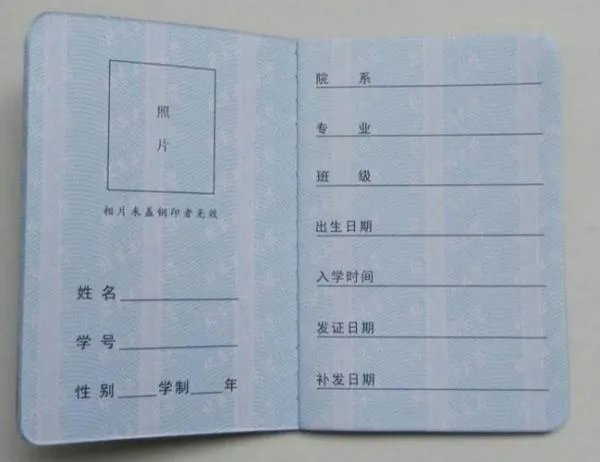 照
片
相片未盖钢印者无效
姓 名
学 号
性 别 学制 年
院 系
专 业
班 级
出生日期
入学时间
发证日期
补发日期